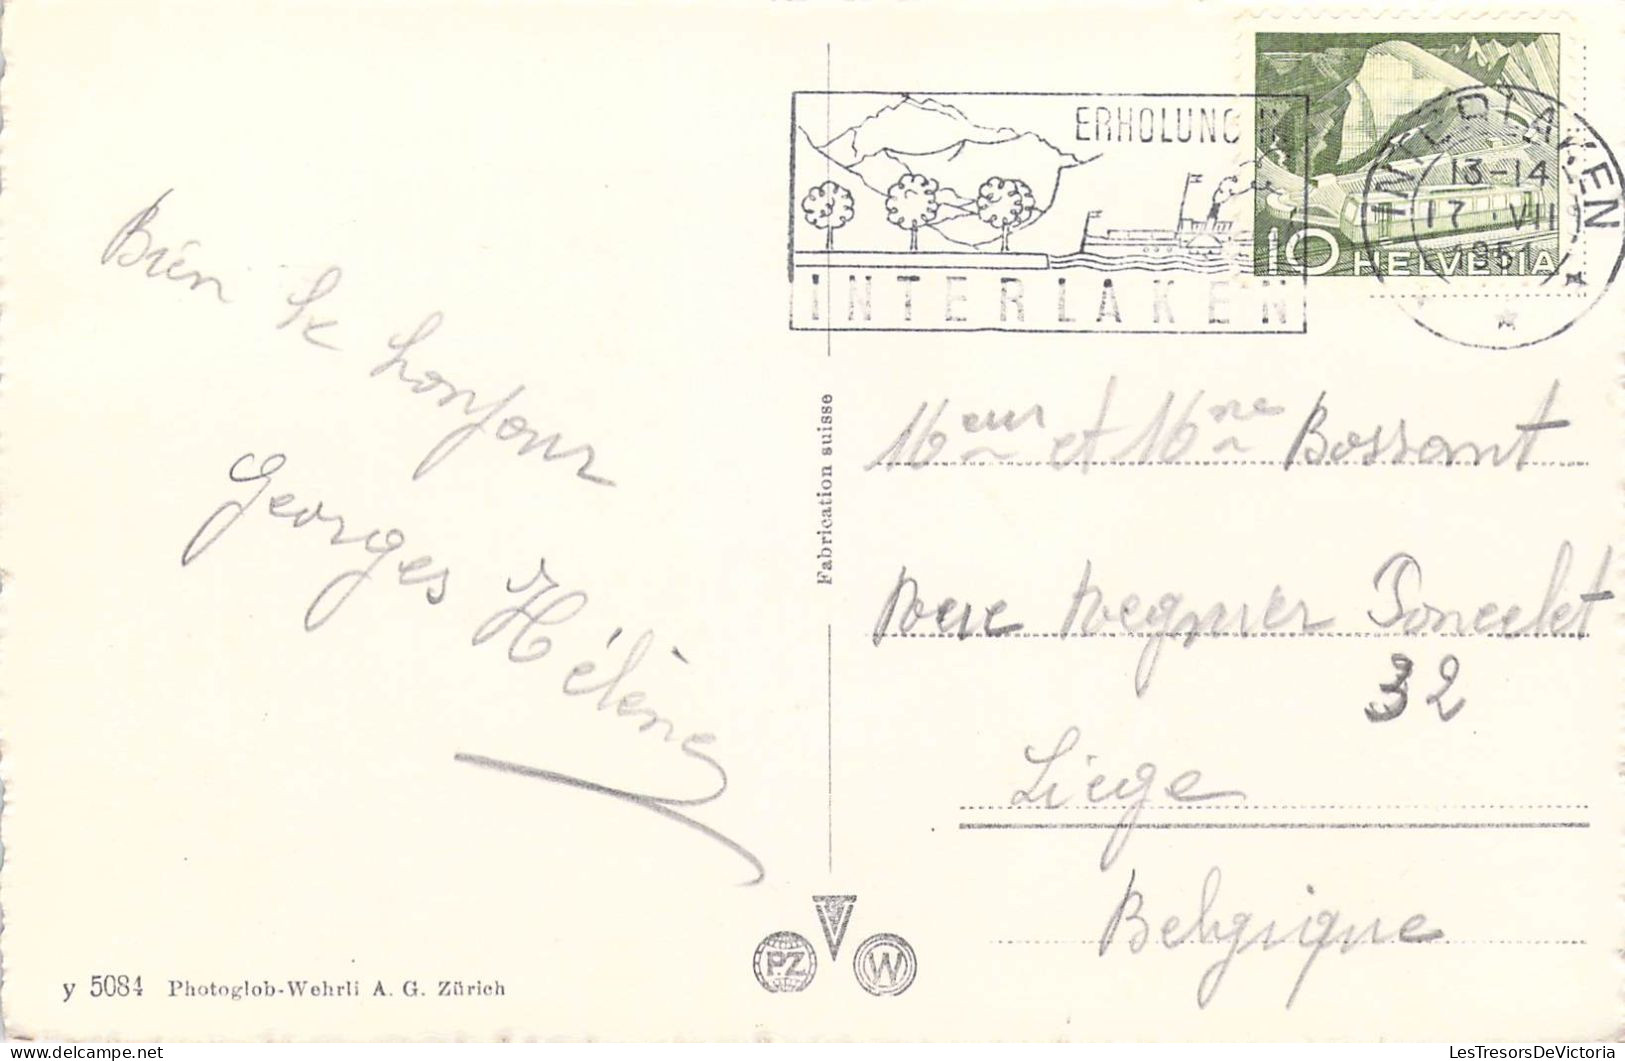 ERHOLUNG IN
INTERLAKEN
INTERLAKEN
13-14
17 · VII
1951
10 HELVETIA
Bien le bonjour
Georges Hélène
Fabrication suisse
Meur et Mme Bossant
Rue Regnier Poncelet
32
Liege
Belgique
y 5084 Photoglob-Wehrli A. G. Zürich
P.Z
W
LesTresorsDeVictoria